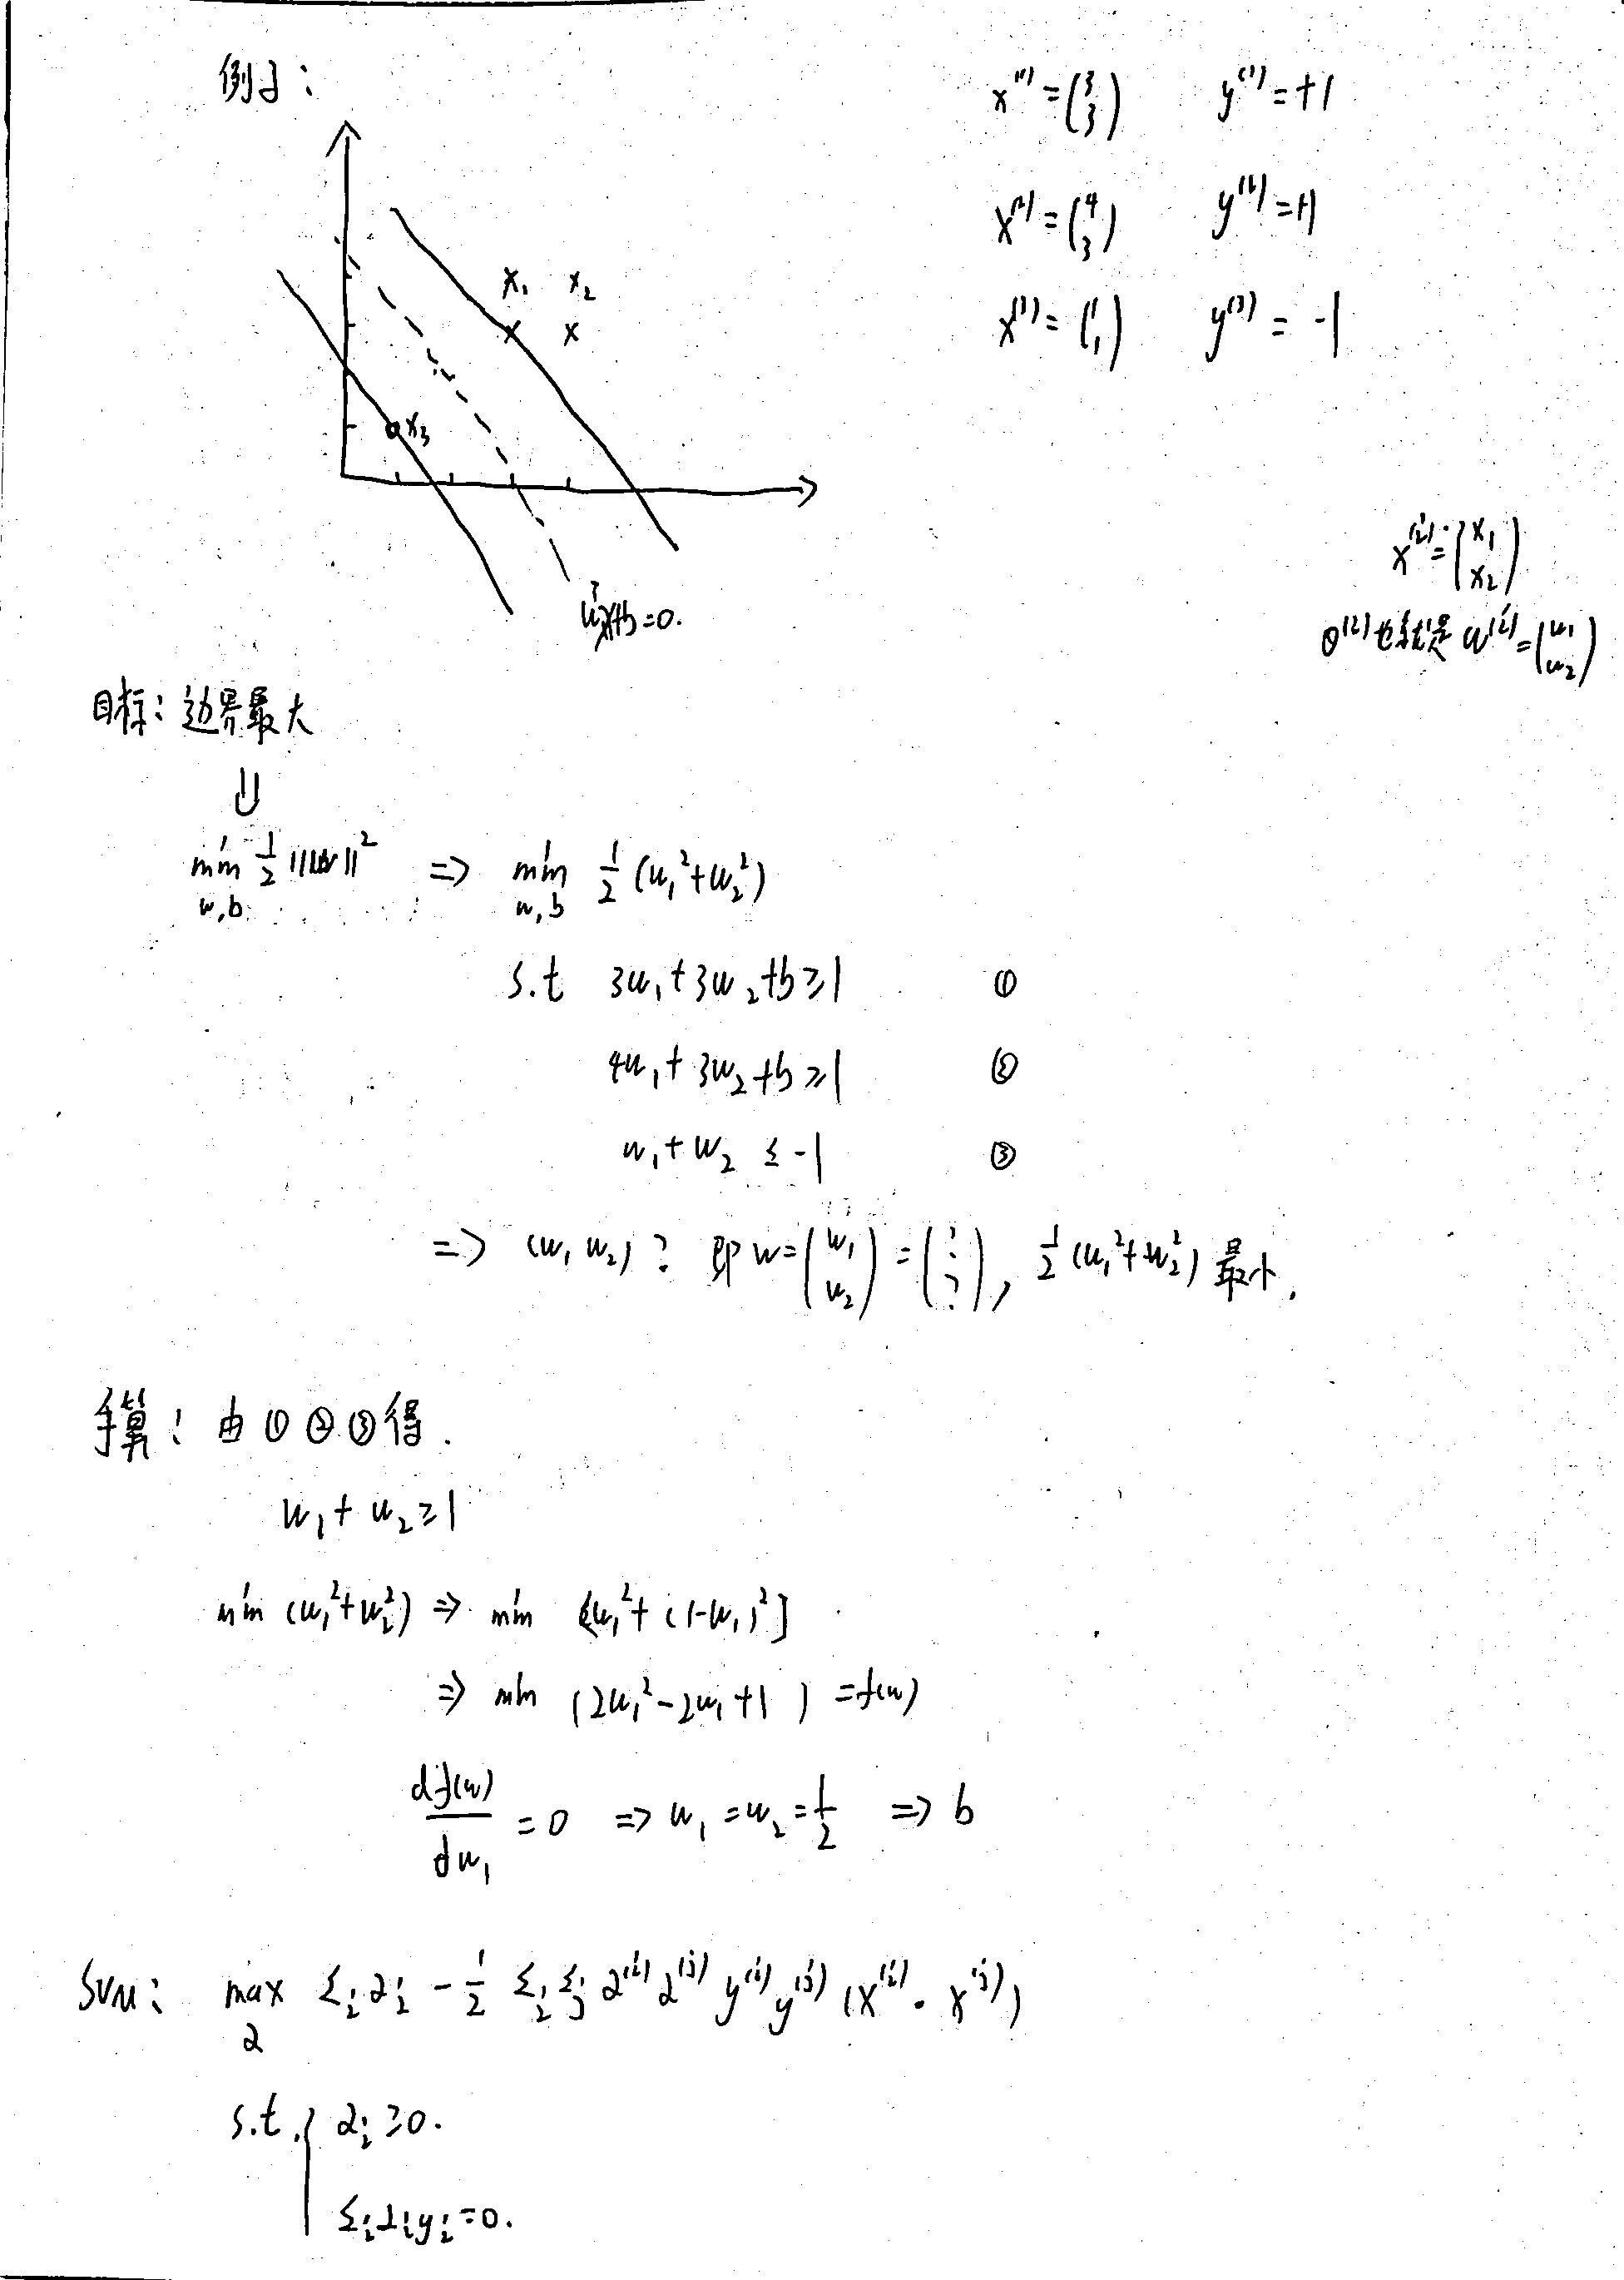 例子：
x⁽¹⁾ = (3 3) y⁽¹⁾ = +1
x⁽²⁾ = (4 3) y⁽²⁾ = +1
x⁽³⁾ = (1 1) y⁽³⁾ = -1
x₁ x₂
x x
x₃
wᵀx+b=0.
x⁽ⁱ⁾ = (x₁ x₂)
θ⁽ⁱ⁾也就是 w⁽ⁱ⁾ = (w₁ w₂)
目标：边界最大
⇓
min w,b 1/2 ||w||² => min w,b 1/2 (w₁²+w₂²)
s.t 3w₁+3w₂+b≥1 ①
4w₁+3w₂+b≥1 ②
w₁+w₂ ≤ -1 ③
=> (w₁ w₂)? 即 w = (w₁ w₂) = (? ?), 1/2 (w₁²+w₂²) 最小.
手算：由①②③得.
w₁+w₂≥1
min (w₁²+w₂²) => min [w₁²+(1-w₁)²]
=> min (2w₁²-2w₁+1) = f(w)
df(w)/dw₁ = 0 => w₁=w₂=1/2 => b
SVM: max α Σᵢαᵢ - 1/2 ΣᵢΣⱼ α⁽ⁱ⁾α⁽ʲ⁾y⁽ⁱ⁾y⁽ʲ⁾(x⁽ⁱ⁾·x⁽ʲ⁾)
s.t. αᵢ≥0.
Σᵢαᵢyᵢ=0.